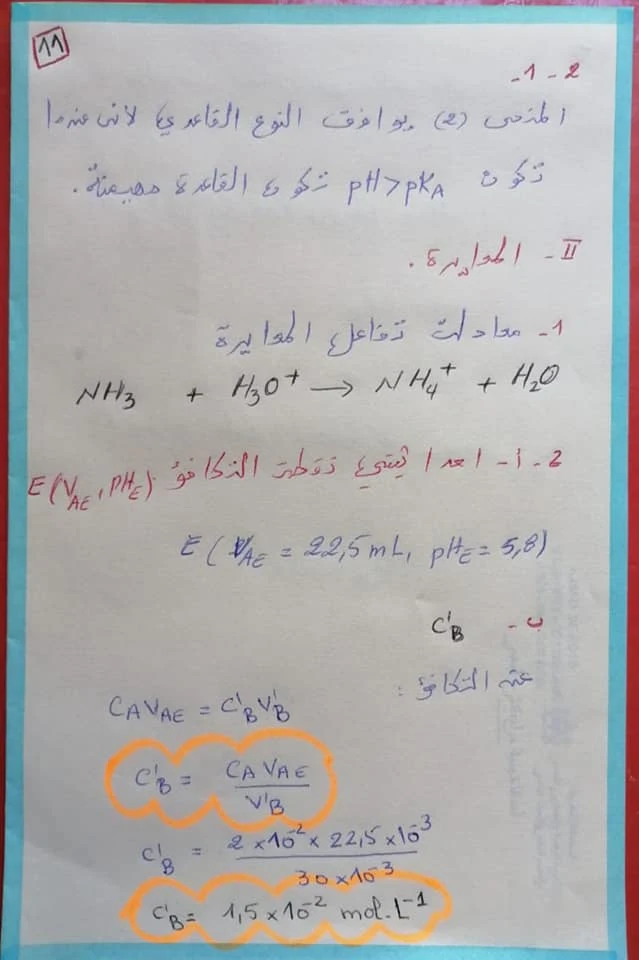 11
2 - 1 -
المنحى (2) يوافق النوع القاعدي لأنه عندما
تكون pH > pKA تكون القاعدة مهيمنة.
II - المعايرة.
1 - معادلة تفاعل المعايرة
NH3 + H3O+ → NH4+ + H2O
2 - أ - احداثيتي نقطة التكافؤ E(VAE, pHE)
E (VAE = 22,5 mL, pHE = 5,8)
ب - C'B
عند التكافؤ :
CAVAE = C'BV'B
C'B = CA VAE / V'B
C'B = 2×10-2 × 22,5×10-3 / 30×10-3
C'B = 1,5×10-2 mol.L-1